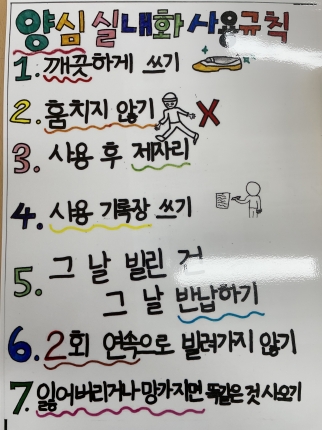 양심 실내화 사용규칙
1. 깨끗하게 쓰기
2. 훔치지 않기 X
3. 사용 후 제자리
4. 사용 기록장 쓰기
5. 그 날 빌린 건
그 날 반납하기
6. 2회 연속으로 빌려가지 않기
7. 잃어버리거나 망가지면 똑같은 것 사오기